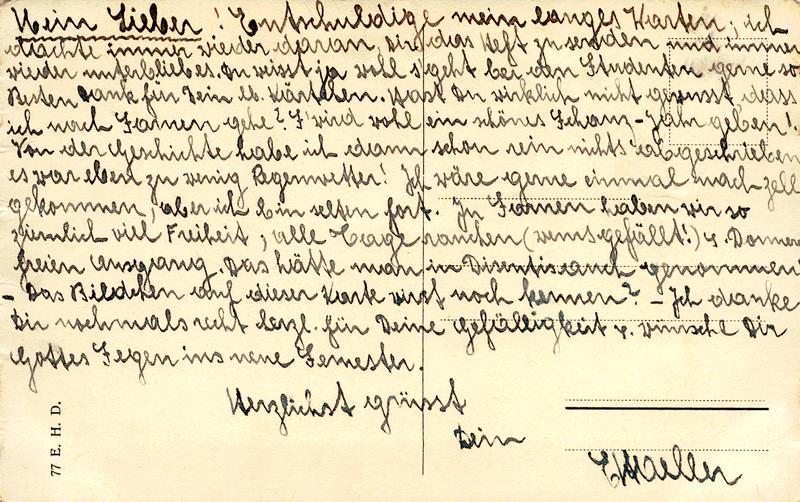 Mein Lieber! Entschuldige mein langes Warten; ich
dachte immer wieder daran, Dir das Heft zu senden und immer
wieder unterblieb es. Du weisst ja wohl s'geht bei den Studenten gerne so
Besten Dank für Dein lb. Kärtchen. Hast Du wirklich nicht gewusst, dass
ich nach Sarnen gehe? S'wird wohl ein schönes Schanz-Jahr geben!
Von der Geschichte habe ich dann schon rein nichts abgeschrieben
es war eben zu wenig Regenwetter! Ich wäre gerne einmal nach Zell
gekommen, aber ich bin selten fort. In Sarnen haben wir so
ziemlich viel Freiheit; alle Tage rauchen (wenns gefällt!) u. Donners
freien Ausgang. Das hätte man in Disentis auch genommen!
- Das Bildchen auf dieser Karte wirst noch kennen? - Ich danke
Dir nochmals recht herzl. für Deine Gefälligkeit u. wünsche Dir
Gottes Segen ins neue Semester.
Herzlichst grüsst
Dein
77 E. H. D.